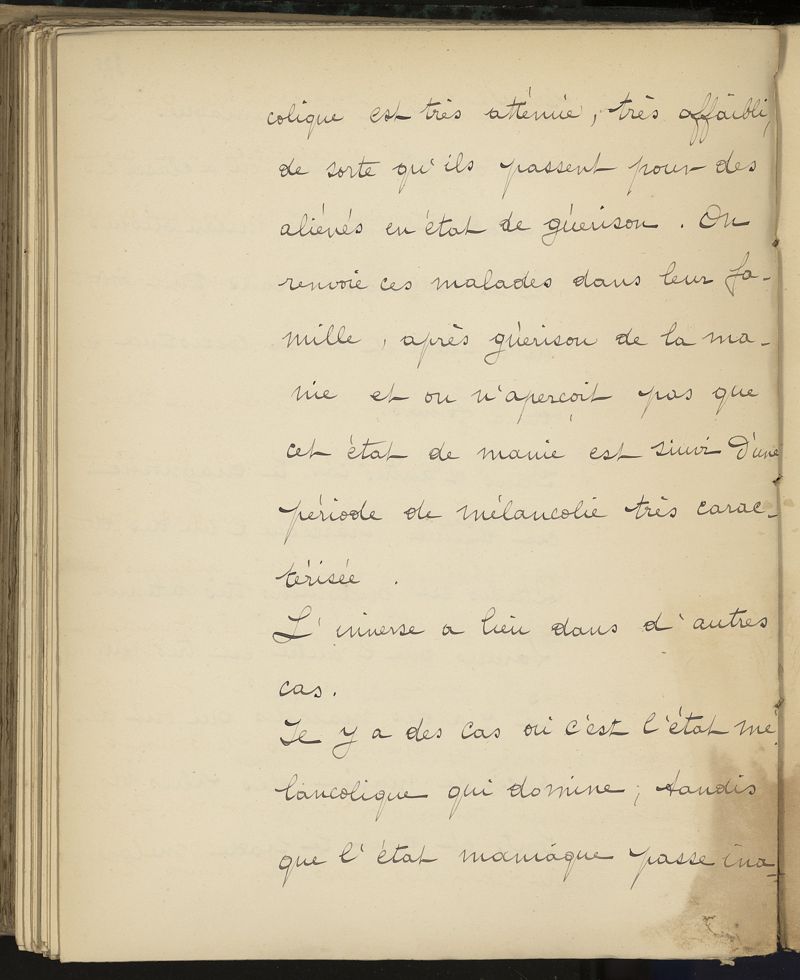 colique est très atténué, très affaibli,
de sorte qu'ils passent pour des
aliénés en état de guérison. On
renvoie ces malades dans leur fa-
mille, après guérison de la ma-
nie et on n'aperçoit pas que
cet état de manie est suivi d'une
période de mélancolie très carac-
térisée.
L'inverse a lieu dans d'autres
cas.
Il y a des cas où c'est l'état mé
lancolique qui domine; tandis
que l'état maniaque passe ina-